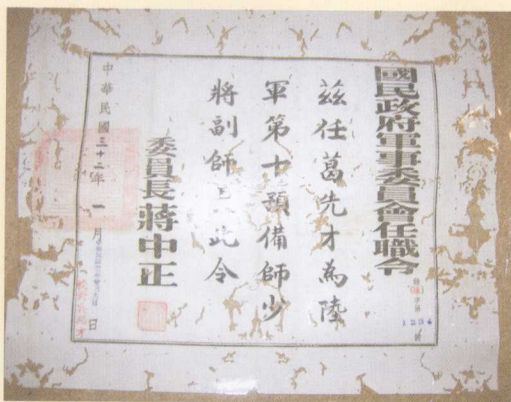 國民政府軍事委員會任職令
茲任葛先才為陸
軍第十預備師少
將副師長此令
委員長蔣中正
中華民國三十二年一月日
1234